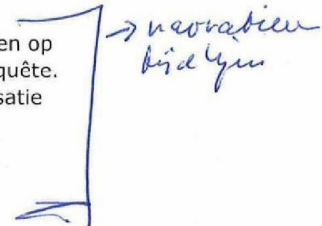 en op
quête.
satie
→ narratieve
tijdlijn